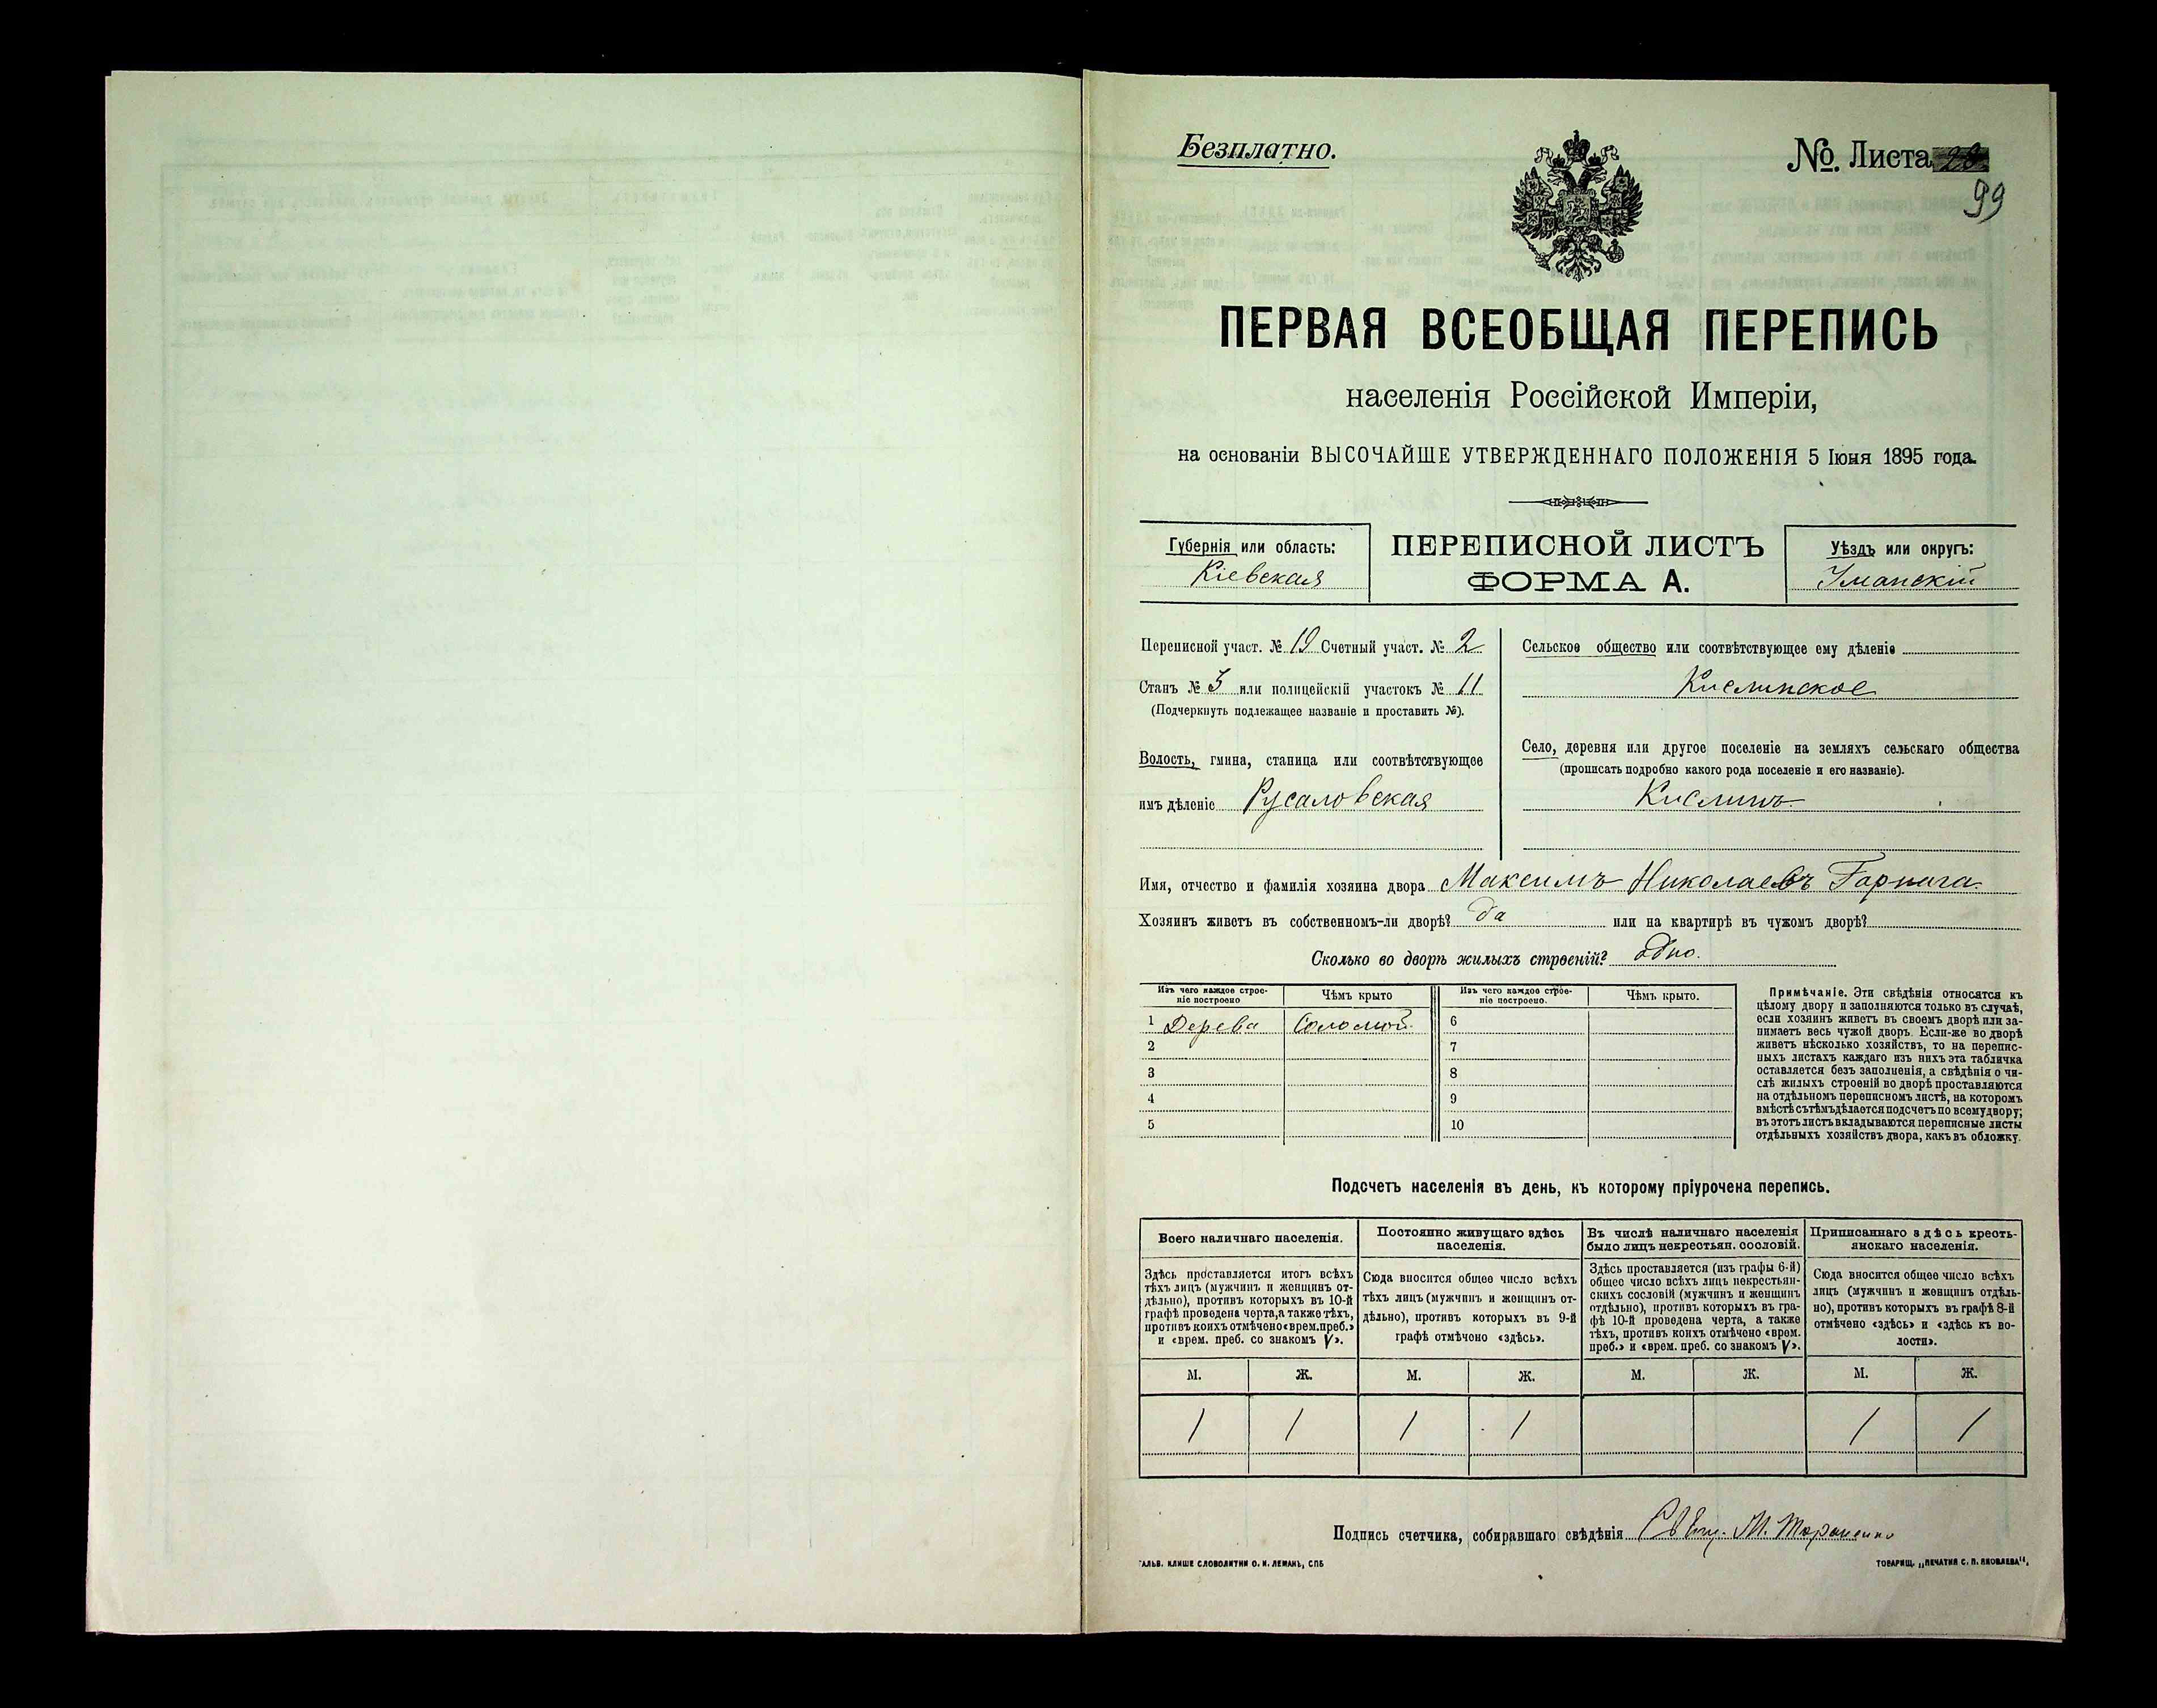 Безплатно.
№. Листа 28
99
ПЕРВАЯ ВСЕОБЩАЯ ПЕРЕПИСЬ
населенія Россійской Имперіи,
на основаніи ВЫСОЧАЙШЕ УТВЕРЖДЕННАГО ПОЛОЖЕНІЯ 5 Іюня 1895 года.
Губернія или область:
Кіевская
ПЕРЕПИСНОЙ ЛИСТЪ
ФОРМА А.
Уѣздъ или округъ:
Уманскій
Переписной участ. № 19 Счетный участ. № 2
Станъ № 5 или полицейскій участокъ № 11
(Подчеркнуть подлежащее названіе и проставить №).
Волость, гмина, станица или соотвѣтствующее
имъ дѣленіе Русаловская
Сельское общество или соотвѣтствующее ему дѣленіе
Кислинское
Село, деревня или другое поселеніе на земляхъ сельскаго общества
(прописать подробно какого рода поселеніе и его названіе).
Кислинъ
Имя, отчество и фамилія хозяина двора Максимъ Николаевъ
Хозяинъ живетъ въ собственномъ-ли дворѣ? да или на квартирѣ въ чужомъ дворѣ?
Сколько во дворѣ жилыхъ строеній? одно.
Изъ чего каждое строе-
ніе построено
Чѣмъ крыто
Изъ чего каждое строе-
ніе построено.
Чѣмъ крыто.
1 Дерева Соломой. 6
2 7
3 8
4 9
5 10
Примѣчаніе. Эти свѣдѣнія относятся къ
цѣлому двору и заполняются только въ случаѣ,
если хозяинъ живетъ въ своемъ дворѣ или за-
нимаетъ весь чужой дворъ. Если-же во дворѣ
живетъ нѣсколько хозяйствъ, то на перепис-
ныхъ листахъ каждаго изъ нихъ эта табличка
оставляется безъ заполненія, а свѣдѣнія о чи-
слѣ жилыхъ строеній во дворѣ проставляются
на отдѣльномъ переписномъ листѣ, на которомъ
вмѣстѣ съ тѣмъ дѣлается подсчетъ по всему двору;
въ этотъ листъ вкладываются переписные листы
отдѣльныхъ хозяйствъ двора, какъ въ обложку.
Подсчетъ населенія въ день, къ которому пріурочена перепись.
Всего наличнаго населенія.
Постоянно живущаго здѣсь
населенія.
Въ числѣ наличнаго населенія
было лицъ некрестьян. сословій.
Приписаннаго здѣсь кресть-
янскаго населенія.
Здѣсь проставляется итогъ всѣхъ
тѣхъ лицъ (мужчинъ и женщинъ от-
дѣльно), противъ которыхъ въ 10-й
графѣ проведена черта, а также тѣхъ,
противъ коихъ отмѣчено «врем. преб.»
и «врем. преб. со знакомъ V».
Сюда вносится общее число всѣхъ
тѣхъ лицъ (мужчинъ и женщинъ от-
дѣльно), противъ которыхъ въ 9-й
графѣ отмѣчено «здѣсь».
Здѣсь проставляется (изъ графы 6-й)
общее число всѣхъ лицъ некрестьян-
скихъ сословій (мужчинъ и женщинъ
отдѣльно), противъ которыхъ въ гра-
фѣ 10-й проведена черта, а также
тѣхъ, противъ коихъ отмѣчено «врем.
преб.» и «врем. преб. со знакомъ V».
Сюда вносится общее число всѣхъ
лицъ (мужчинъ и женщинъ отдѣль-
но), противъ которыхъ въ графѣ 8-й
отмѣчено «здѣсь» и «здѣсь къ во-
лости».
М. Ж. М. Ж. М. Ж. М. Ж.
1 1 1 1 1 1
Подпись счетчика, собиравшаго свѣдѣнія М.
ГАЛЬВ. КЛИШЕ СЛОВОЛИТНИ О. И. ЛЕМАНЪ, СПБ
ТОВАРИЩ. „ПЕЧАТНЯ С. П. ЯКОВЛЕВА“.